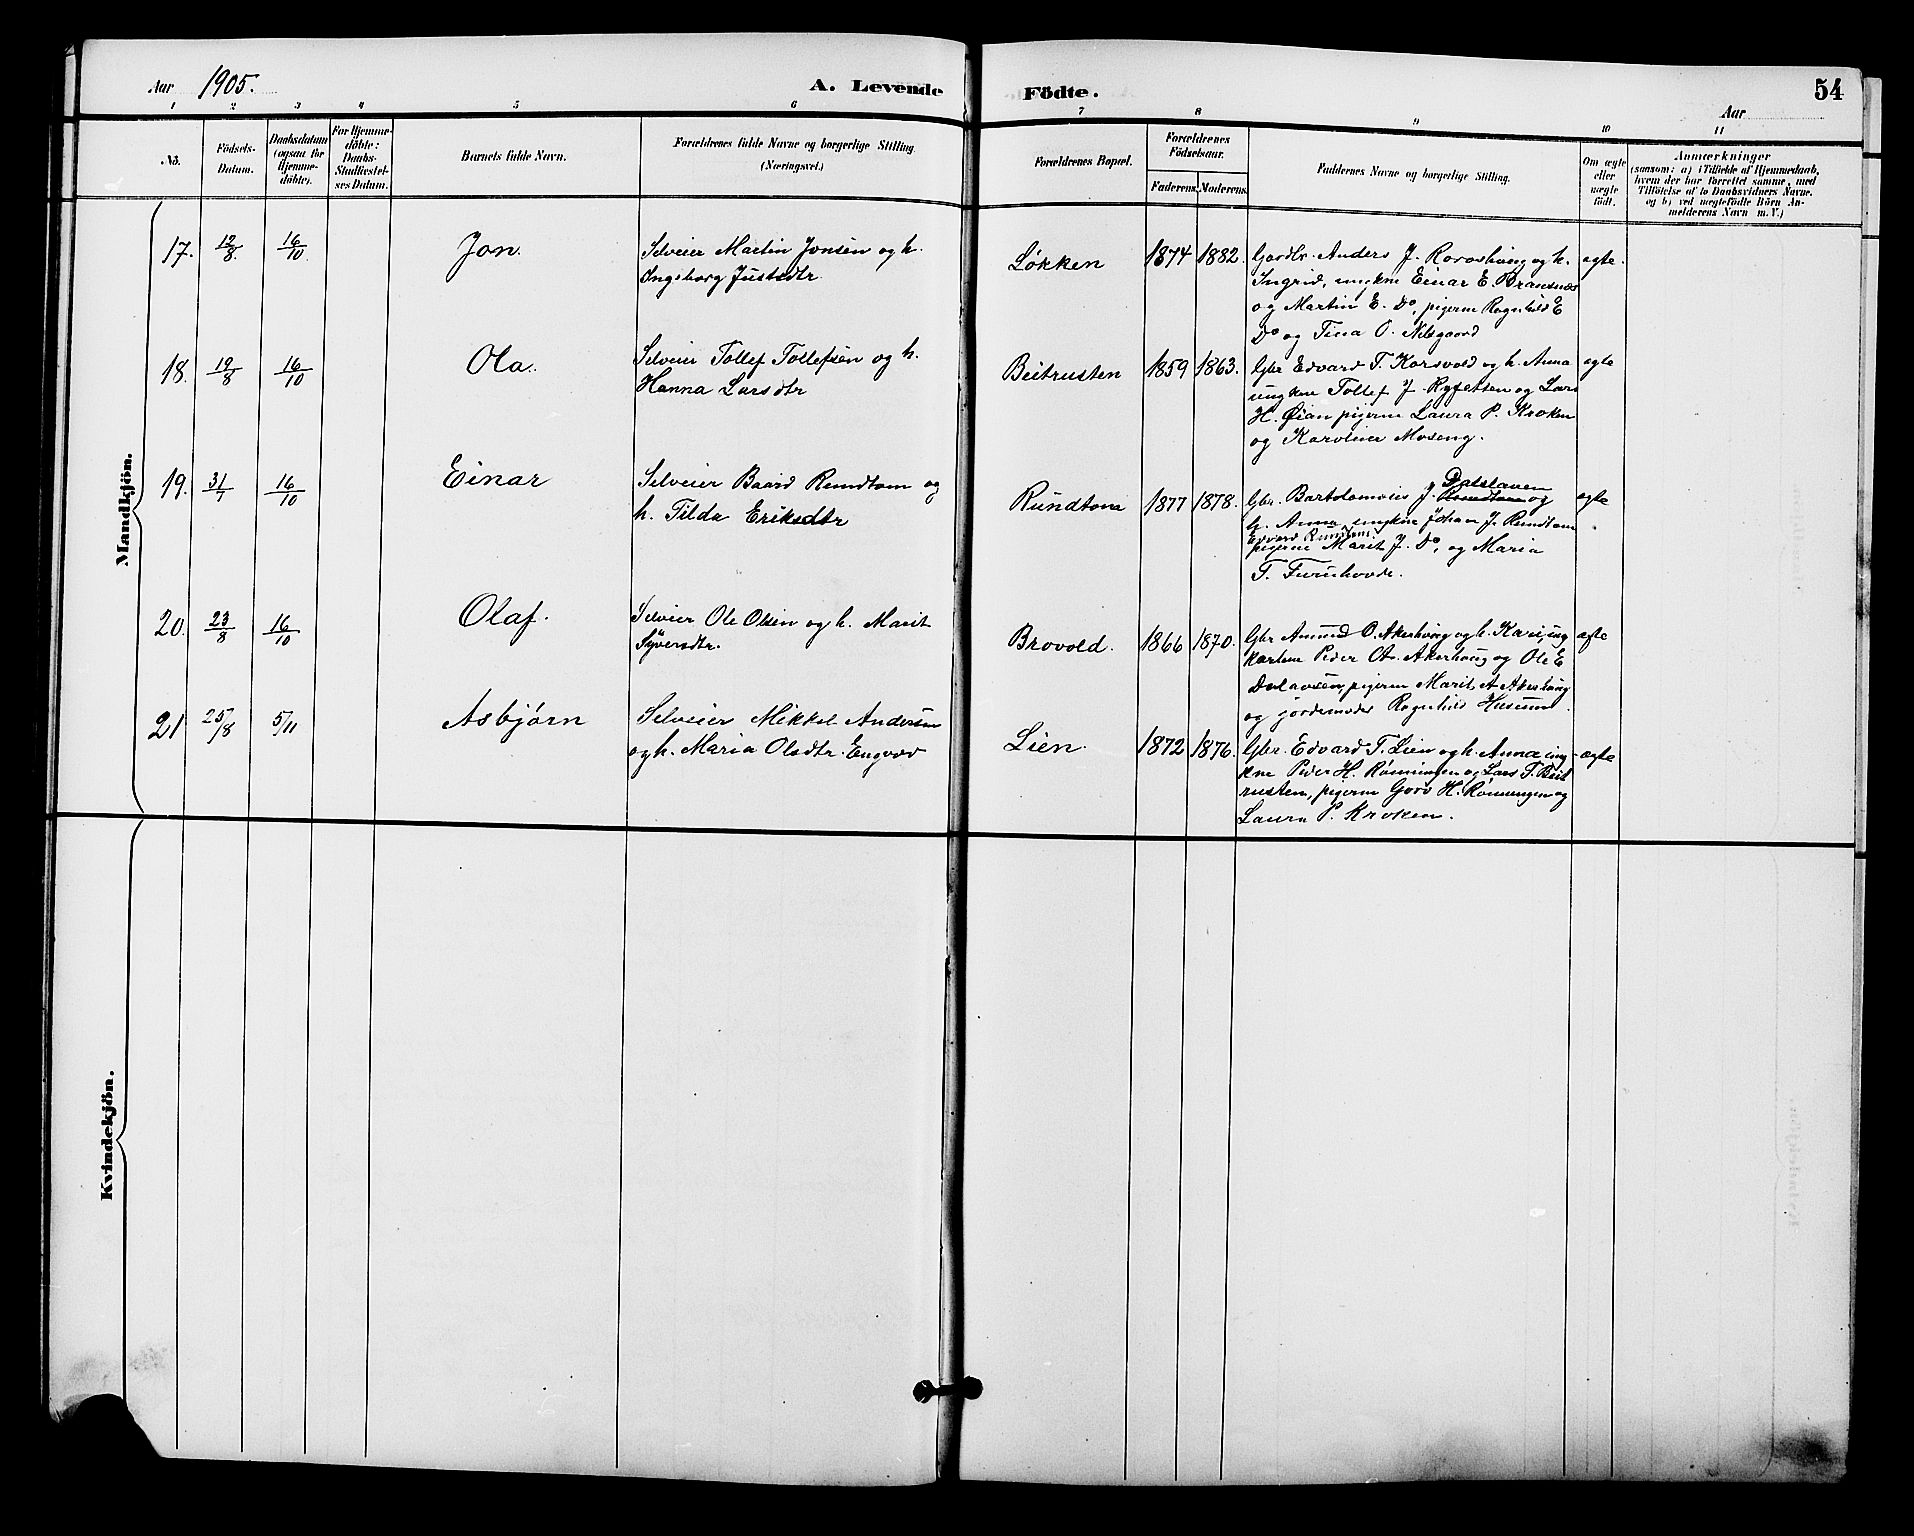 Aar 1905.
A. Levende Födte.
54
Aar
1 2 3 4 5 6 7 8 9 10 11
No.
Födsels-Datum.
Daabsdatum (ogsaa for Hjemme-döbte).
For Hjemme-döbte: Daabs-Stadfæstel-ses Datum.
Barnets fulde Navn.
Forældrenes fulde Navne og borgerlige Stilling (Næringsvei.)
Forældrenes Bopæl.
Forældrenes Födselsaar.
Faderens. Moderens.
Faddernes Navne og borgerlige Stilling.
Om ægte eller uægte födt.
Anmærkninger
(saasom: a) i Tilfælde af Hjemmedaab,
hvem der har forrettet samme, med
Tilföielse af to Daabsvidners Navne.
og b) ved uægtefödte Börn An-
melderens Navn m. V.)
Mandkjön.
17. 12/8 16/10 Jon.
Selveier Martin Jonsen og h.
Ingeborg Justsdtr
Løkken 1874 1882.
Gaardbr. Anders J. og h.
Ingrid, ungkne Einar E.
og Martin E. Do, pigerne Ragnhild E
Do og Tina O. Nilsgaard
ægte.
18. 19/8 16/10 Ola.
Selveier Tollef Tollefsen og h.
Hanna Larsdtr
Beitrusten 1859 1863.
Gbr Edvard T. Korsvold og h. Anna
ungkne Tollef J. og Lars
H. Øian pigerne Laura P. Kroken
og Moseng.
ægte
19. 31/7 16/10 Einar
Selveier Baard Rundtom og
h. Tilda Eriksdtr
Rundtom 1877 1878.
Dalslaaen
Gbr. J. Rundtom og
h. Anna, ungkne Johan J. Rundtom
Edvard Rundtom
pigerne Marit J. Do, og Maria
T. Furuhovde.
ægte
20. 23/8 16/10 Olaf.
Selveier Ole Olsen og h. Marit
Syversdtr.
Brovold. 1866 1870.
Gbr Amund O. Akerhaug og h. Kari, ung
karlene Peder A. Akerhaug og Ole E
pigerne Marit A Akerhaug
og jordemoder Ragnhild Husum.
ægte
21 25/8 5/11 Asbjørn
Selveier Mikkel Andersen
og h. Maria Olsdtr. Engvold
Lien. 1872 1876.
Gbr. Edvard T. Lien og h. Anna, ung-
kne Peder H. Rønningen og Lars T. Beit
rusten, pigerne Goro H. Rønningen og
Laura P. Kroken.
ægte
Kvindekjön.